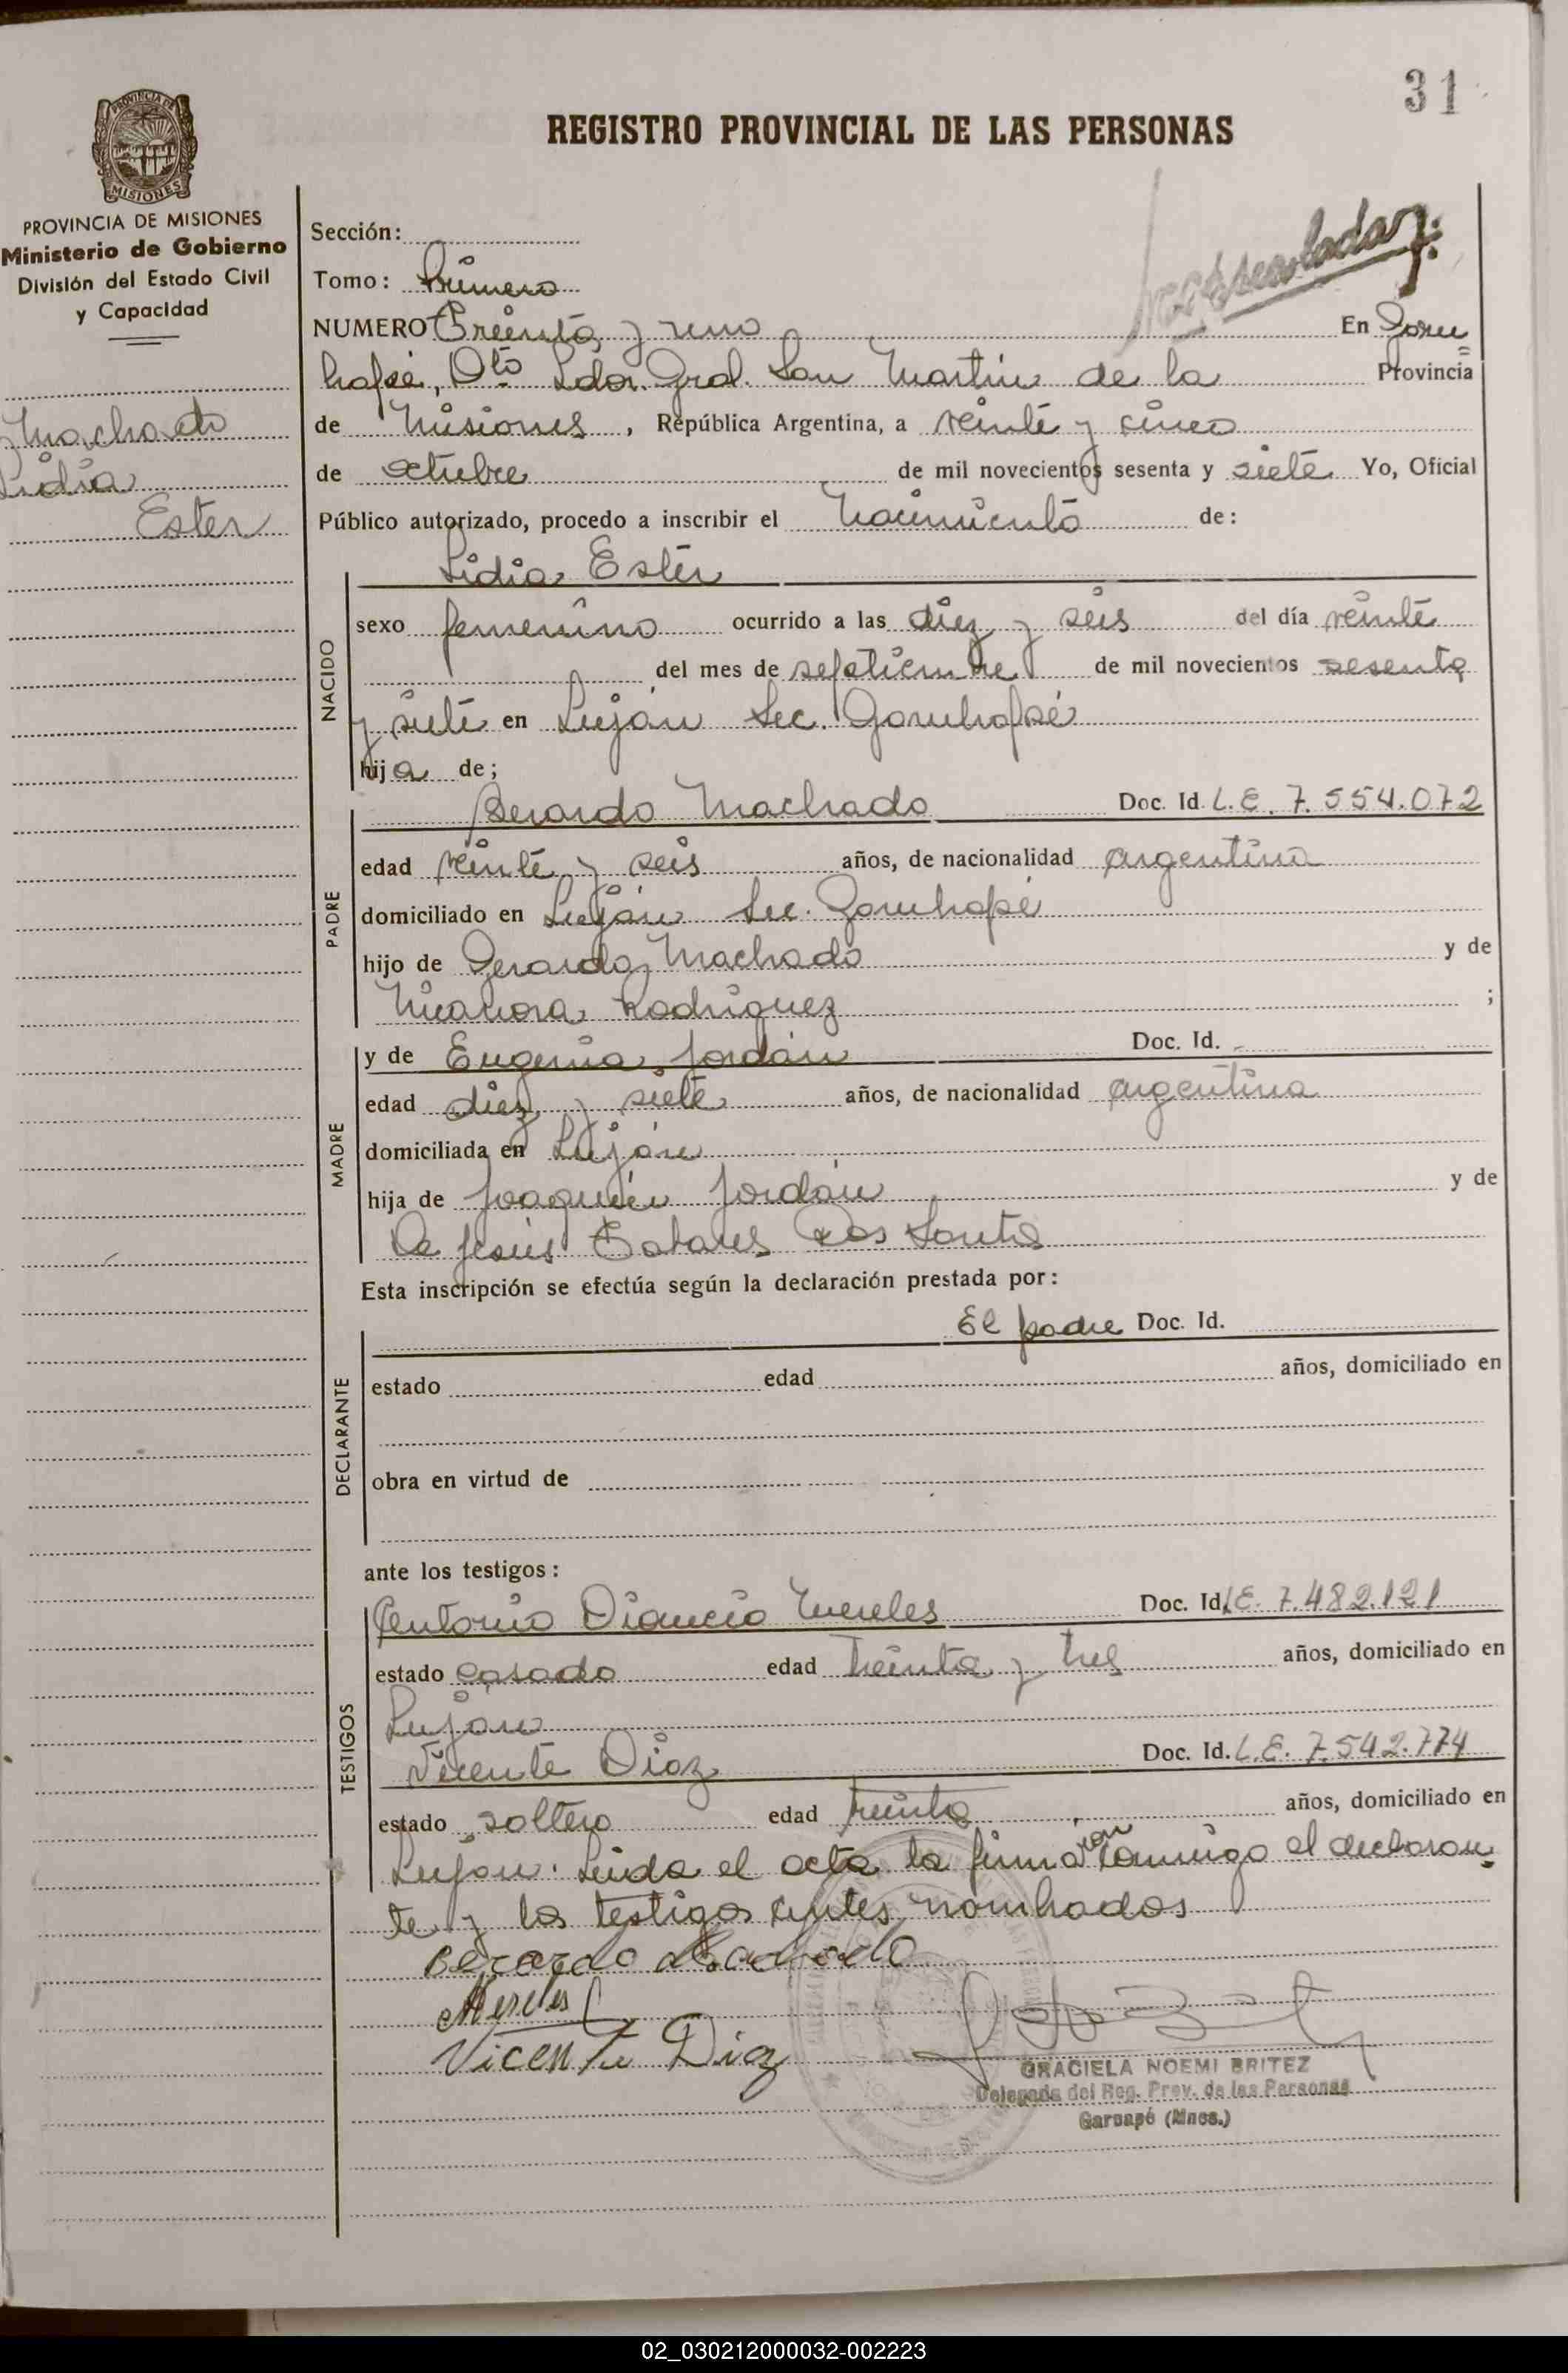 31
REGISTRO PROVINCIAL DE LAS PERSONAS
PROVINCIA DE
MISIONES
PROVINCIA DE MISIONES
Ministerio de Gobierno
División del Estado Civil
y Capacidad
Machado
Lidia
Ester
Sección:
Tomo: Primero
NUMERO Treinta y uno En Garu
hapé, Dto Ldor. Gral. San Martin de la Provincia
de Misiones, República Argentina, a veinte y cinco
de octubre de mil novecientos sesenta y siete Yo, Oficial
Público autorizado, procedo a inscribir el Nacimiento de:
Lidia Ester
NACIDO
sexo femenino ocurrido a las diez y seis del día veinte
del mes de septiembre de mil novecientos sesenta
y siete en Luján Sec. Garuhapé
hija de;
PADRE
Berardo Machado Doc. Id. L.E. 7.554.072
edad veinte y seis años, de nacionalidad argentina
domiciliado en Luján Sec. Garuhapé
hijo de Gerardo Machado y de
Nicanora Rodriguez ;
MADRE
y de Eugenia Jordán Doc. Id. -
edad diez y siete años, de nacionalidad argentina
domiciliada en Luján
hija de Joaquin Jordán y de
De Jesús Dos Santos
Esta inscripción se efectúa según la declaración prestada por:
DECLARANTE
El padre Doc. Id.
estado edad años, domiciliado en
obra en virtud de
ante los testigos:
TESTIGOS
Antonio Mereles Doc. Id. L.E. 7.482.121
estado casado edad treinta y tres años, domiciliado en
Luján
Vicente Diaz Doc. Id. L.E. 7.542.774
estado soltero edad treinta años, domiciliado en
Luján. Leida el acta la firmaron conmigo el declaran
te y los testigos antes nombrados
Berardo Machado
Mereles
Vicente Diaz
GRACIELA NOEMI BRITEZ
Delegada del Reg. Prov. de las Personas
Garuapé (Mnes.)
02_030212000032-002223